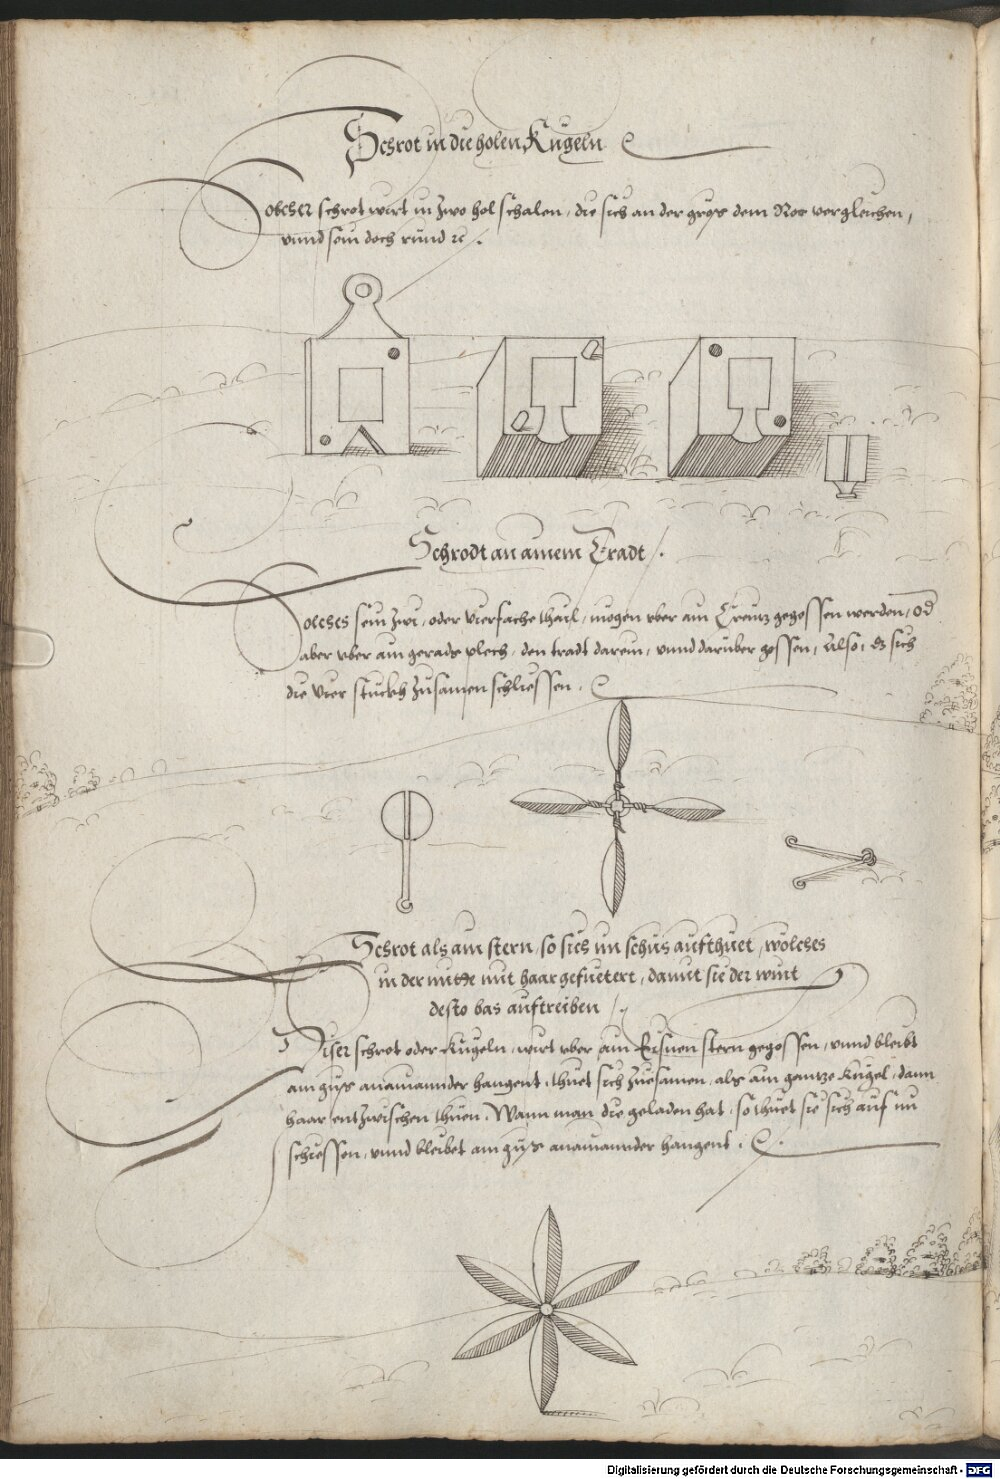 Schrot in die holen Kugeln
Solcher schrot wirt in zwo hol schalen, die sich an der grös dem Ror vergleichen,
vnnd sein doch rund ꝛc.
Schrodt an ainem Tradt
Solches sein zwi, oder Vierfache thail, mögen vber ain Creutz gegossen werden, od
aber vber ain gerads plech, den tradt darein, vnnd darüber gossen, Also, ds sich
die Vier stuckh zusamen schliessen.
Schrot als ain stern, so sich im schus aufthuet, wölches
in der mitte mit haar gefuetert, damit sie der wint
desto bas auftreiben
Diser schrot oder Kugeln, wirt vber ain Eisnen stern gegossen, vnnd bleibt
am güss anainannder hangent, thuet sich zuesamen, als ain gantze Kugel, dann
haar entzwischen thuen. Wann man die geladen hat, so thuet sie sich auf im
schiessen, vnnd bleibet am güss anainannder hangent.
Digitalisierung gefördert durch die Deutsche Forschungsgemeinschaft - DFG